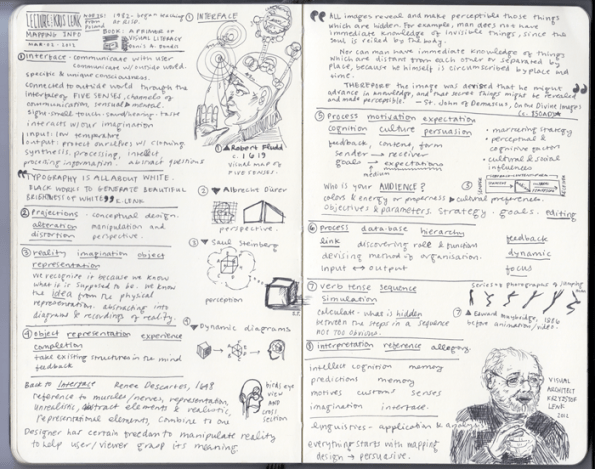 LECTURE: KRIS LENK
MAPPING INFO
MAR·02·2012
1982 - began teaching
at RISD.
BOOK: A PRIMER OF
VISUAL LITERACY
Donis A. Dondis
① INTERFACE
① interface - communicate with user
communicate w/outside world.
specific & unique consciousness.
connected to outside world through the
interface: FIVE SENSES, channels of
communication, sensual & mental.
sign - smell - touch - sound/hearing - taste
interacts w/our imagination
input: low temporary
synthesis, processing, intellect
providing information. abstract questions
① ▲ Robert Fludd
c. 1619
visual map of
FIVE SENSES.
"TYPOGRAPHY IS ALL ABOUT WHITE.
BLACK WORKS TO GENERATE BEAUTIFUL
BRIGHTNESS OF WHITE" K. LENK
② projections - conceptual design.
alteration manipulation and
distortion perspective.
② ▼ Albrecht Dürer
perspective.
③ reality imagination object
representation
we recognize it because we know
what it is supposed to be. we know
the idea from the physical
representation. abstracting into
diagrams & recordings of reality.
③ ▼ Saul Steinberg
perception
④ object representation experience
completion
take existing structures in the mind
feedback
④ ▼ Dynamic diagrams
Back to interface Renee Descartes, 1648
reference to muscles/nerves, representation,
unrealistic, abstract elements & realistic,
representational elements, combine to one
Designer has certain freedom to manipulate reality
to help user/viewer grasp its meaning
birds eye
view
AND
cross
section
"ALL images reveal and make perceptible those things
which are hidden. For example, man does not have
immediate knowledge of invisible things, since the
soul is veiled by the body.
Nor can man have immediate knowledge of things
which are distant from each other or separated by
place, because he himself is circumscribed by place and
time.
THEREFORE the image was devised that he might
advance in knowledge, and that secret things might be revealed
and made perceptible." — St. John of Damascus, On the Divine Images
⑤ process motivation expectation
cognition culture persuasion
feedback, content, form
sender → receiver
goals → expectations
medium
• marketing strategy
• perceptual &
cognitive factors
• cultural & social
influences
WHO is your AUDIENCE?
colors & energy or properness > cultural preferences.
objectives & parameters. strategy. goals. editing
⑥ process data-base hierarchy
link discovering role & function
devising method of organisation.
input ↔ output
feedback
dynamic
focus
⑦ verb tense sequence
simulation
calculate - what is hidden
between the steps in a sequence
NOT too obvious.
series of photographs of jumping
⑦ ▲ Edward Muybridge, 1886
before animation/video.
⑧ interpretation reference allegory
intellect cognition memory
predictions memory
motives customs senses
imagination interface.
linguistics - application &
everything starts with mapping
design → persuasive.
VISUAL
ARCHITECT
KRZYSZTOF
LENK
2012